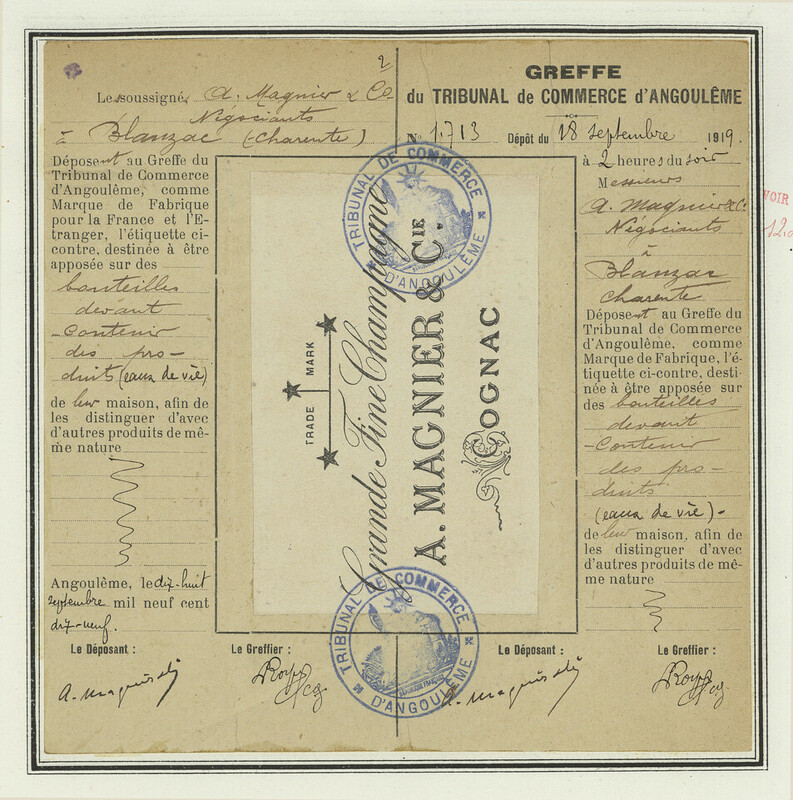 2
Le soussigné A. Magnier & Co
Négociants
à Blanzac (Charente)
Déposent au Greffe du
Tribunal de Commerce
d'Angoulême, comme
Marque de Fabrique
pour la France et l'E-
tranger, l'étiquette ci-
contre, destinée à être
apposée sur des
bouteilles
devant
contenir
des pro-
duits (eaux de vie)
de leur maison, afin de
les distinguer d'avec
d'autres produits de mê-
me nature
Angoulême, le dix-huit
septembre mil neuf cent
dix-neuf.
Le Déposant :
Le Greffier :
GREFFE
du TRIBUNAL de COMMERCE d'ANGOULÊME
N° 1.713 Dépôt du 18 Septembre 1919.
à 2 heures du soir
Messieurs
A. Magnier & Co.
Négociants
à
Blanzac
Charente
Déposent au Greffe du
Tribunal de Commerce
d'Angoulême, comme
Marque de Fabrique, l'é-
tiquette ci-contre, desti-
née à être apposée sur
des bouteilles
devant
contenir
des pro-
duits
(eaux de vie) -
de leur maison, afin de
les distinguer d'avec
d'autres produits de mê-
me nature
Le Déposant :
Le Greffier :
TRADE MARK
Grande Fine Champagne
A. MAGNIER & CIE.
COGNAC
TRIBUNAL DE COMMERCE
D'ANGOULÊME
TRIBUNAL DE COMMERCE
D'ANGOULÊME
VOIR